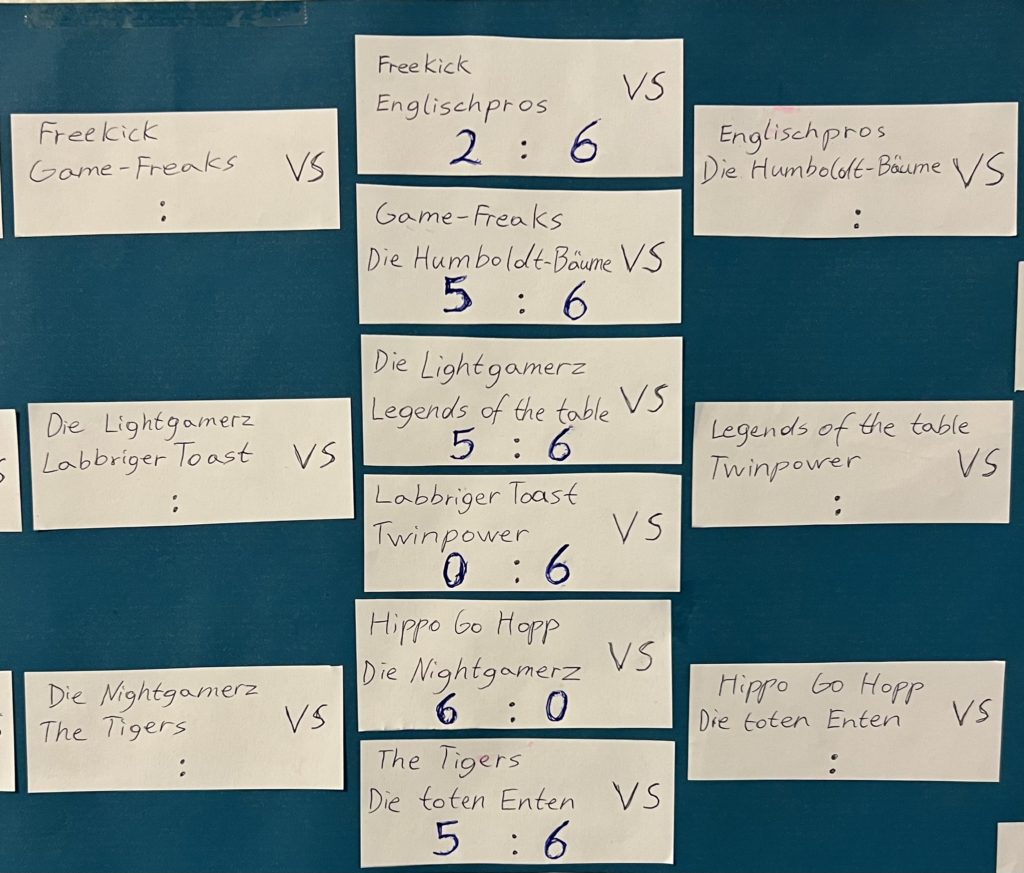 Freekick
Game-Freaks VS
:
Die Lightgamerz
Labbriger Toast VS
:
Die Nightgamerz
The Tigers VS
:
Freekick VS
Englischpros
2 : 6
Game-Freaks
Die Humboldt-Bäume VS
5 : 6
Die Lightgamerz
Legends of the table VS
5 : 6
Labbriger Toast
Twinpower VS
0 : 6
Hippo Go Hopp
Die Nightgamerz VS
6 : 0
The Tigers
Die toten Enten VS
5 : 6
Englischpros
Die Humboldt-Bäume VS
:
Legends of the table
Twinpower VS
:
Hippo Go Hopp
Die toten Enten VS
: